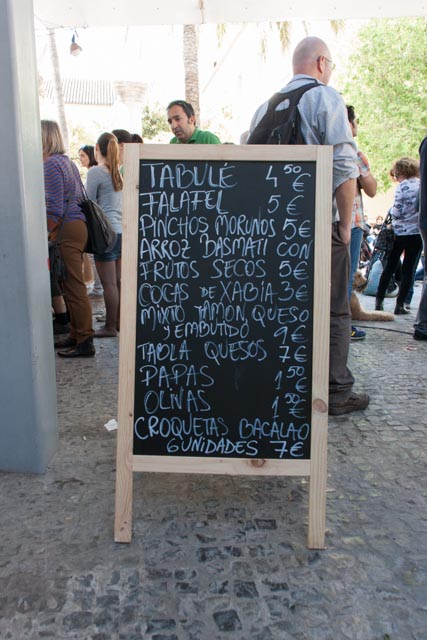 TABULÉ 4 50 €
FALAFEL 5 €
PINCHOS MORUNOS 5 €
ARROZ BASMATI CON
FRUTOS SECOS 5€
COCAS DE XABIA 3€
MIXTO JAMON QUESO
Y EMBUTIDO 9€
TABLA QUESOS 7€
PAPAS 1 50 €
OLIVAS 1 50 €
CROQUETAS BACALAO
6 UNIDADES 7€